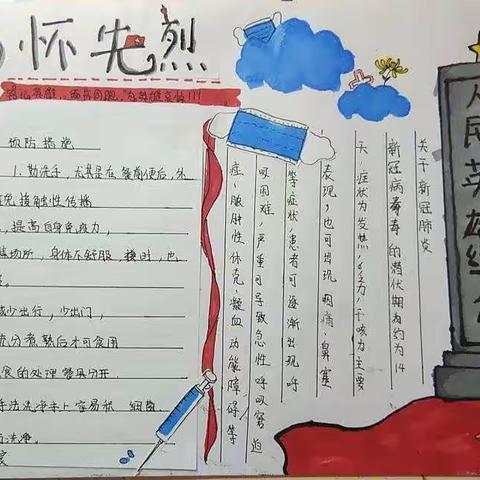 怀先烈
预防措施
1、勤洗手，尤其是在餐前便后，外
免接触性传播
，提高自身免疫力，
场所，身体不舒服 时，也
减少出行，少出门，
充分煮熟后才可食用
食的处理 分开.
手法洗净手上容易 细菌
洗净.
关于新冠肺炎
新冠病毒毒的潜伏期为约为14
天，症状为发热，乏力，干咳为主要
表现，也可出现咽痛、鼻塞
等症状，患者可逐渐出现呼
吸困难，严重可导致急性呼吸窘迫
症、脓肿性休克、凝血功能障碍等
人民英雄纪念